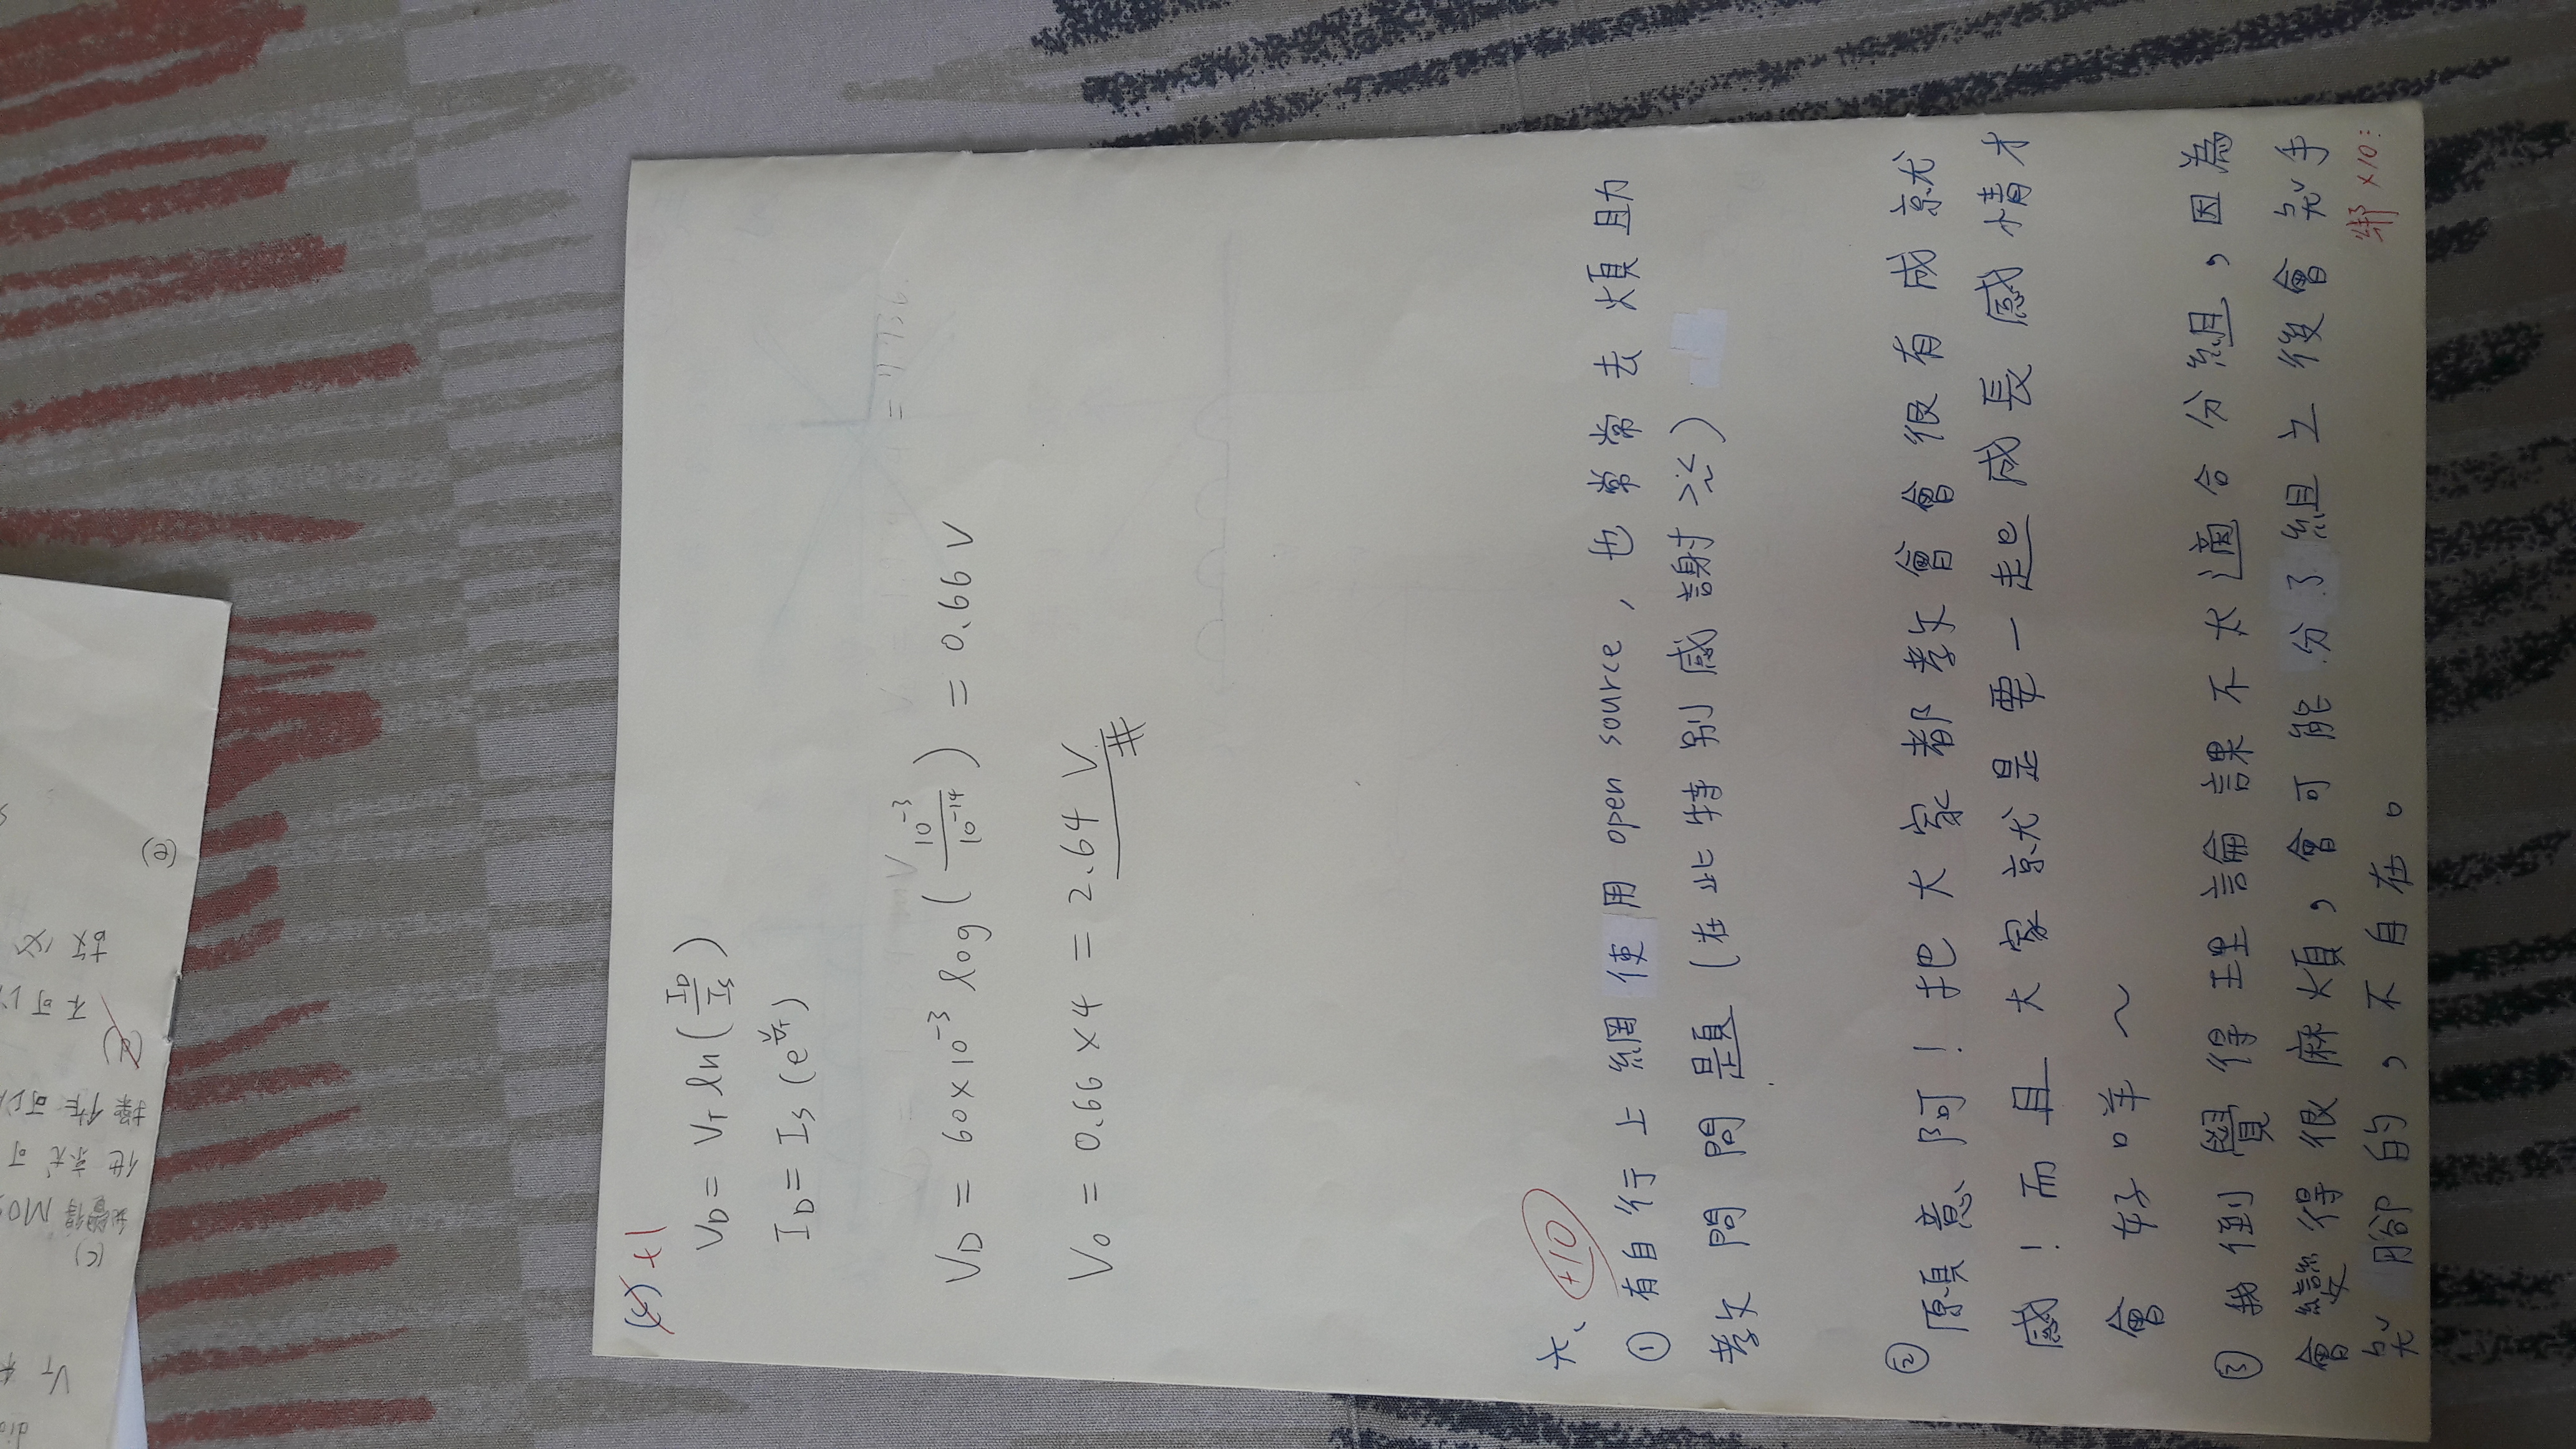 V_T
(c)
我覺得 MOS
他就可
操作可以
(d)
不可以
故必
(e)
(c) +1
V_D = V_T ln(I_D/I_S)
I_D = I_S (e^{V/V_T})
V_D = 60×10^{-3} log(10^{-3}/10^{-14}) = 0.66 V
V_o = 0.66 × 4 = 2.64 V. #
六、 +10
① 有自行上網使用 open source, 也常常去煩助
教問問題(在此特別感謝>~<)
② 願意阿!把大家都教會會很有成就
感!而且大家就是要一起成長感情才
會好咩~
③ 我倒覺得理論課不太適合分組,因為
會變得很麻煩,會可能分了組之後會 手
腳的,不自在。
綁 ×10: